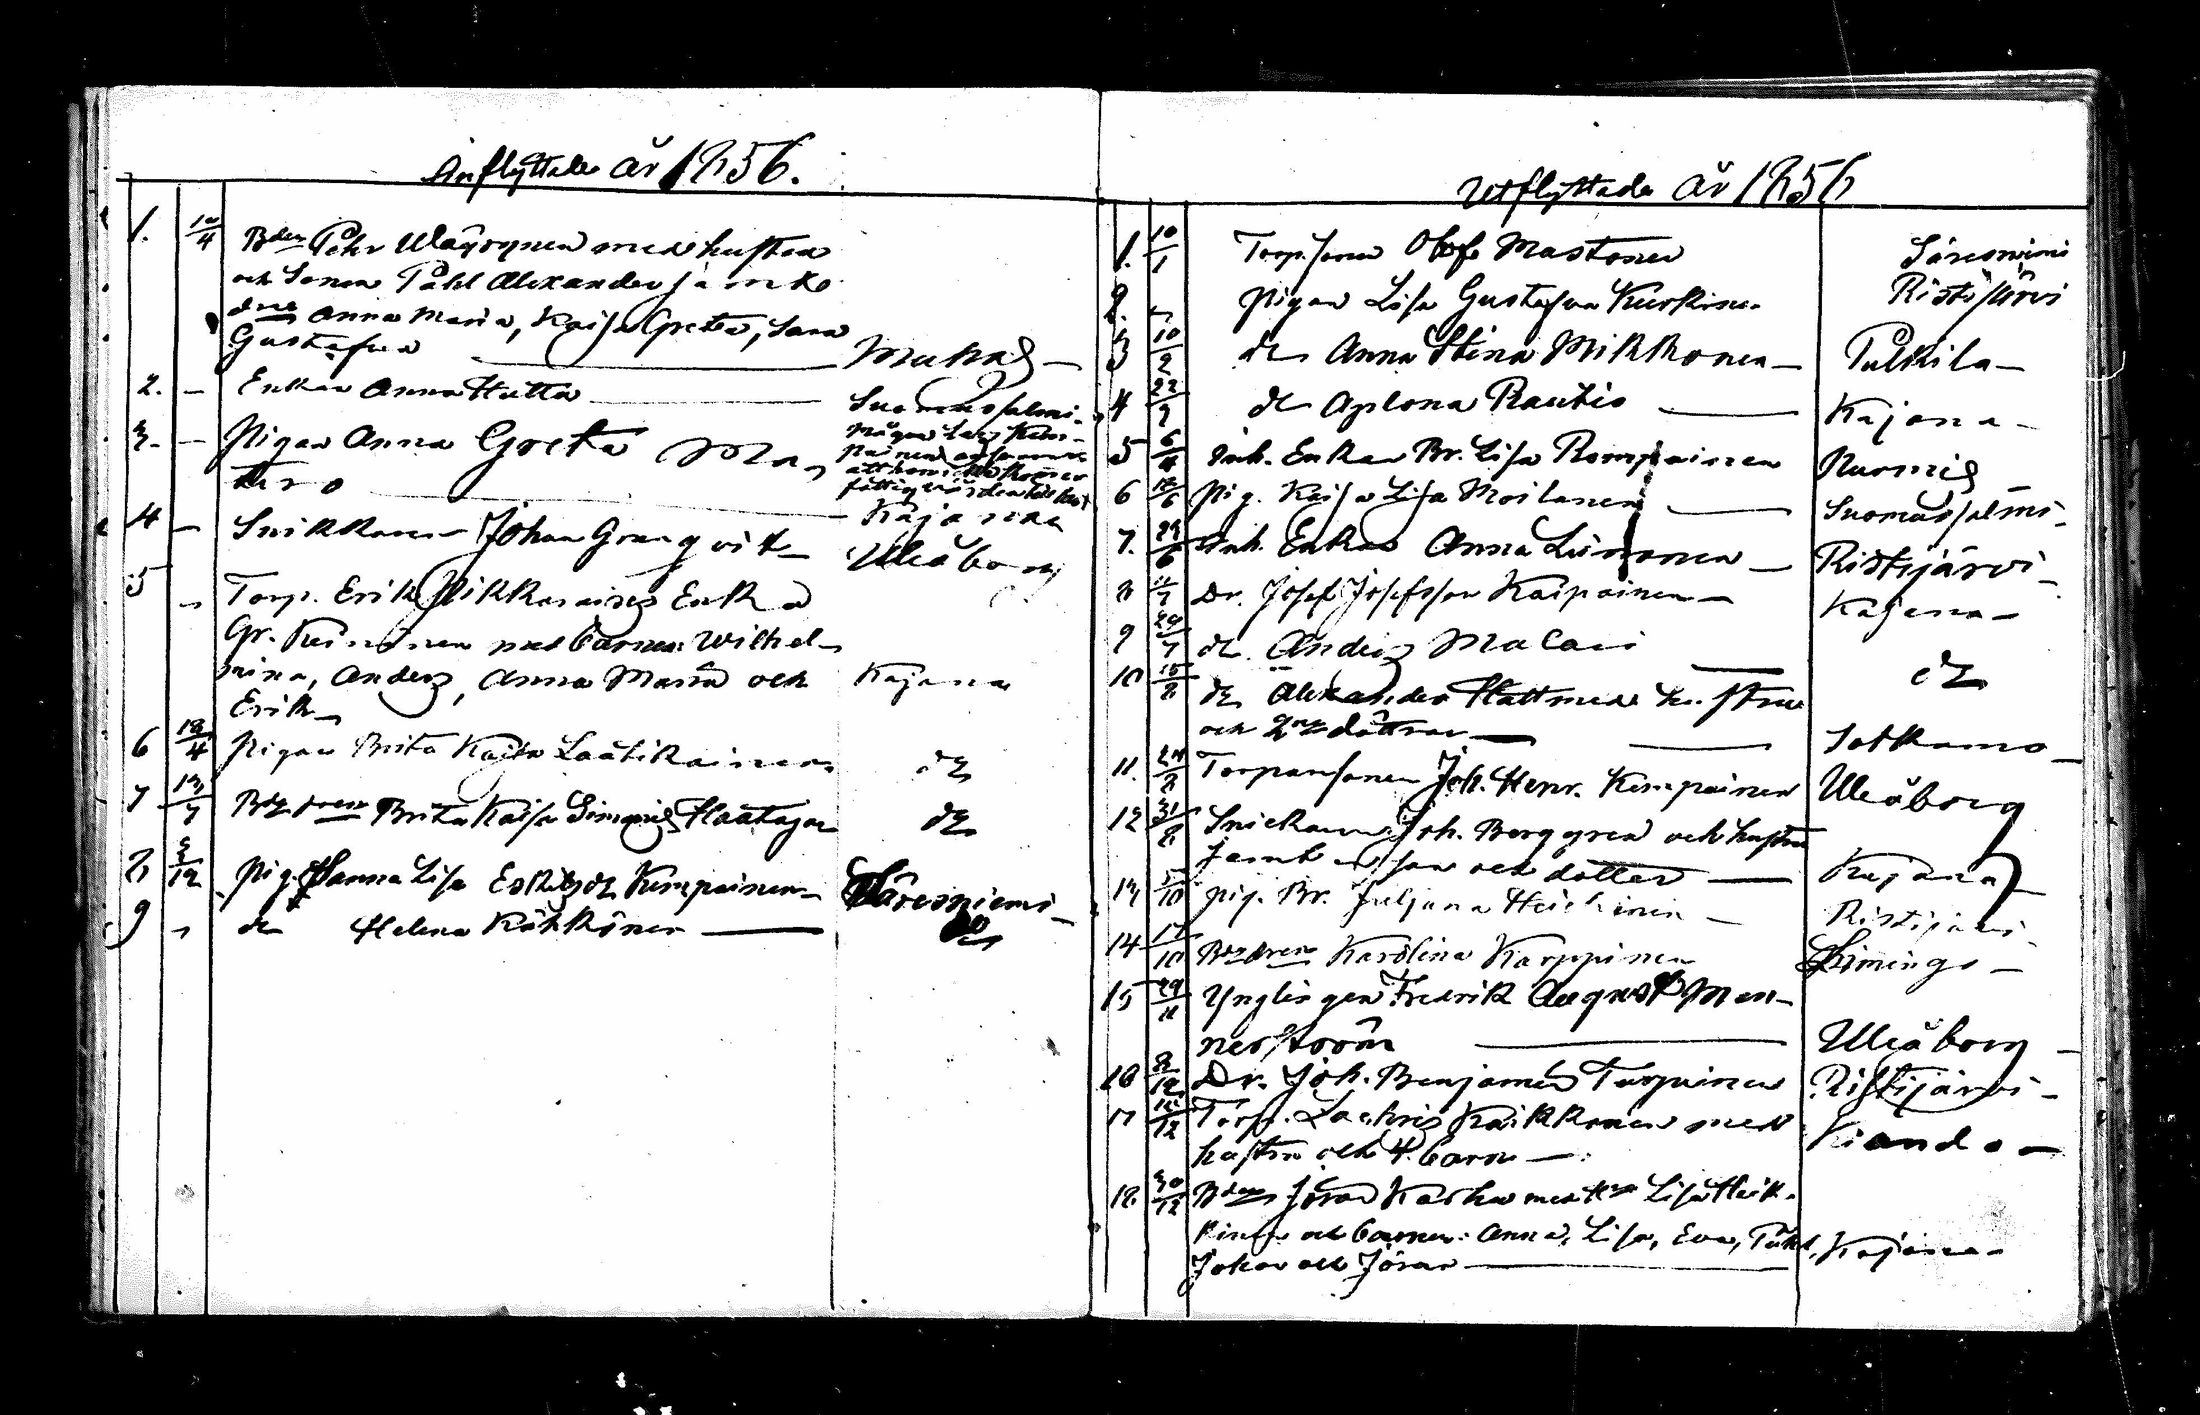 Inflyttade år 1856.
1. 10/4 Bden Pehr Wäyrynen med hustru
och Sonen Påhl Alexander jämte
drne Anna Maria, Kaisa Greta, Sara
Gustafva — Muhos —
2. — Enkan Anna Hutta — Suomussalmi
3. — Pigan Anna Greta
tero —
4 — Snikkaren Johan Granqvist — Uleåborg
5 „ Torp. Erik Enka
Gr. Keinänen med barnen: Wilhel-
mina, Anders, Anna Maria och Kajana
Erik —
6 18/4 Pigan Brita Kajsa Laatikainen do
7 13/7 Brita Kaisa Simonsd. Haataja do
8 5/12 Pig. Sanna Lisa Kemppainen — Säresniemi —
9 „ do Helena Kähkönen — do
Utflyttade år 1856
1. 10/1 Torp.sonen Olof Mastonen Säresniemi
2. „ Pigan Lisa Gustafva Kurkinen Ristijärvi
3 10/2 do Anna Stina Mikkonen — Pulkila —
4 22/2 do Aplona Rautio — Kajana —
5 6/4 Inh. Enkan Br. Lisa Romppainen Nurmis
6 Pig. Kaisa Lisa Moilanen — Suomussalmi
7. 29/6 Inh. Enkan Anna — Ristijärvi —
8 11/7 Dr. Josef Josefsson Kaipainen — Kajana —
9 29/7 do Anders Malari do
10 10/8 do Alexander Hatt med hustru
och 2ne döttrar — Sotkamo —
11. 24/8 Torparesonen Joh. Henr. Kemppainen Uleåborg
12 31/8 Snickaren Joh. Berggren och hustru
jemte son och dotter — Kajana
13 5/10 Pig. Br. Juljana Heikkinen — Ristijärvi
14 17/10 Karolina Karppinen Limingo —
15 29/11 Ynglingen Fredrik August Man-
nerström — Uleåborg —
16 8/12 Dr. Joh. Benjamin Turpeinen Ristijärvi —
17 Torp. Zachris Kaikkonen med
hustru och 4 barn — Kiando —
18. 30/12 Bden Jöran Karhu med h. Lisa Heik-
kinen och barnen: Anna, Lisa, Eva, Påhl,
Johan och Jöran — Kajana —